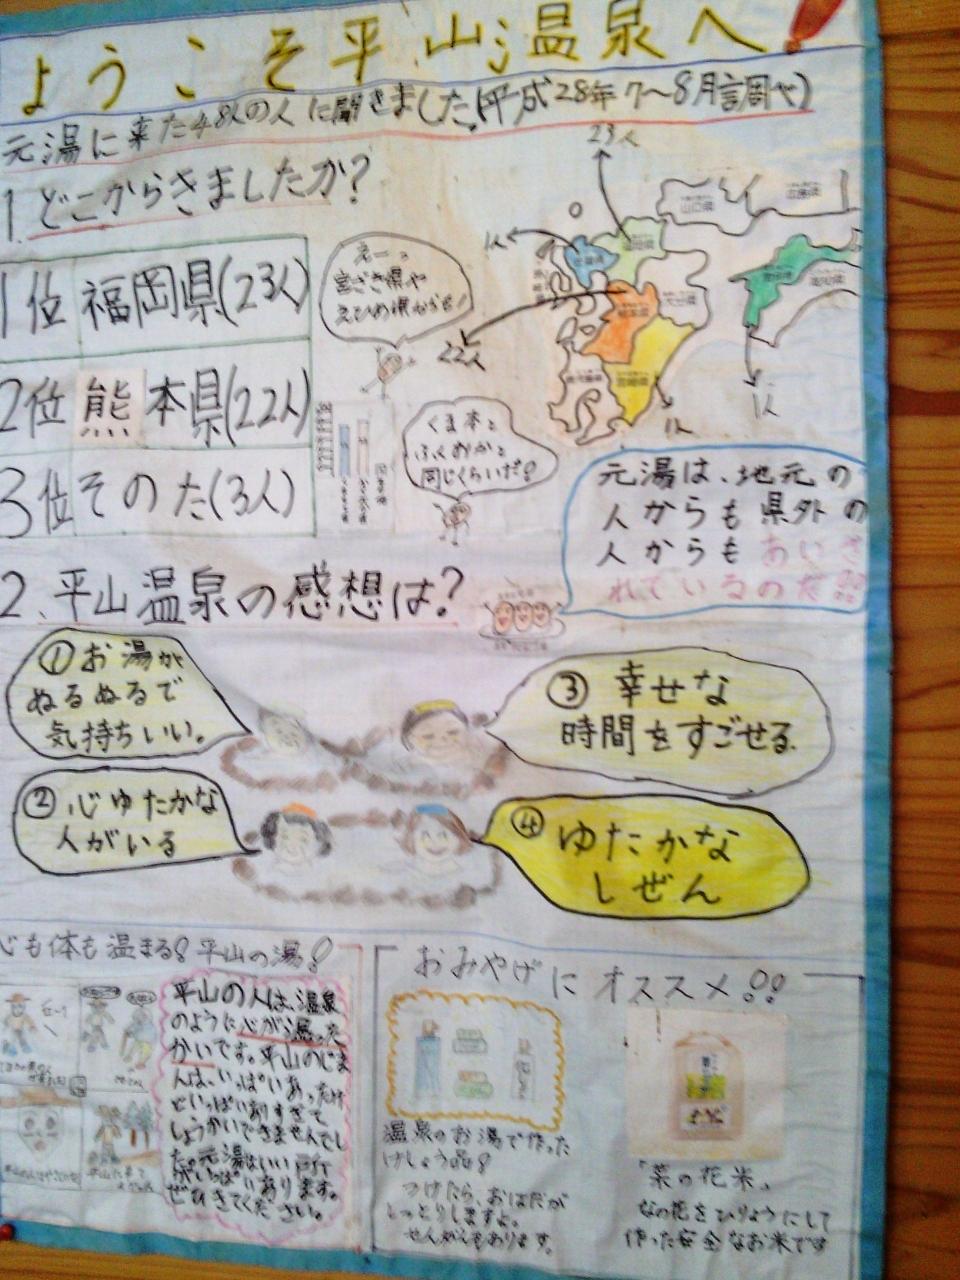 ようこそ平山温泉へ!
元湯に来た48人の人に聞きました(平成28年7〜8月調べ)
1.どこからきましたか?
1位 福岡県(23人)
2位 熊本県(22人)
3位 そのた(3人)
えーっ
宮ざき県や
えひめ県からも!
くま本と
ふくおかと
同じくらいだ!
23人
1人
22人
1人
1人
山口県
広島県
福岡県
佐賀県
大分県
熊本県
宮崎県
鹿児島県
愛媛県
高知県
元湯は、地元の
人からも県外の
人からもあいさ
れているのだ!!
2、平山温泉の感想は?
①お湯が
ぬるぬるで
気持ちいい。
②心ゆたかな
人がいる
③幸せな
時間をすごせる。
④ゆたかな
しぜん
心も体も温まる!平山の湯!
平山の人は、温泉
のように心が温った
かいです。平山のじま
んは、いっぱいあったけ
どいっぱいありすぎて
しょうかいできませんでし
た。元湯はいい所
がいっぱいあります。
ぜひきてください。
おみやげにオススメ!!
温泉のお湯で作った
けしょう品!
つけたら、おはだが
しっとりしますよ。
せんがんもあります。
「菜の花米」
なの花をひりょうにして
作った安全なお米です